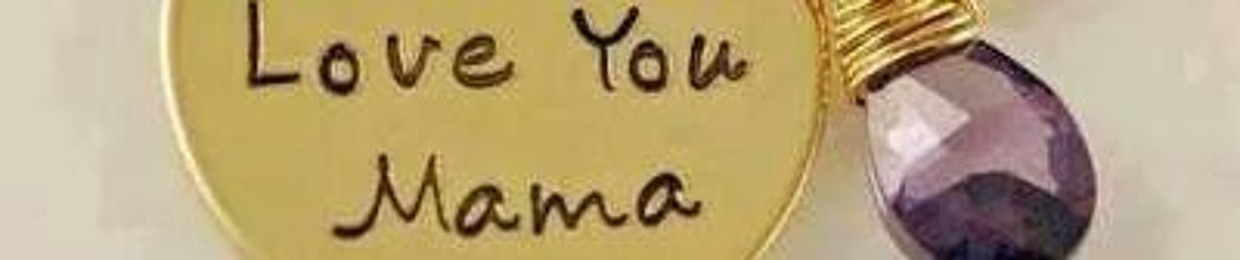 Love You
Mama